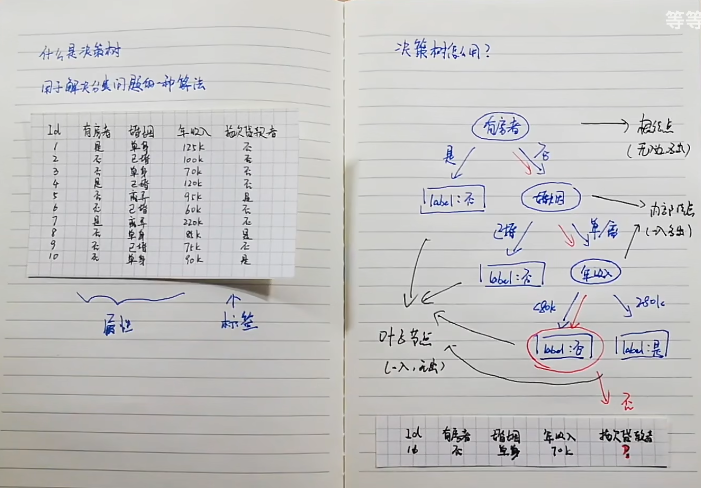 等等
什么是决策树
用于解决分类问题的一种算法
Id 有房者 婚姻 年收入 拖欠贷款者
1 是 单身 125k 否
2 否 已婚 100k 否
3 否 单身 70k 否
4 是 已婚 120k 否
5 否 离异 95k 是
6 否 已婚 60k 否
7 是 离异 220k 否
8 否 单身 85k 是
9 否 已婚 75k 否
10 否 单身 90k 是
属性 标签
决策树怎么用?
有房者
根结点
(无入边)
是 否
label:否 婚姻
内部结点
已婚 单/离
label:否 年收入
<80k ≥80k
叶子节点
(一入,无出)
label:否 label:是
否
Id 有房者 婚姻 年收入 拖欠贷款者
否 单身 70k ?